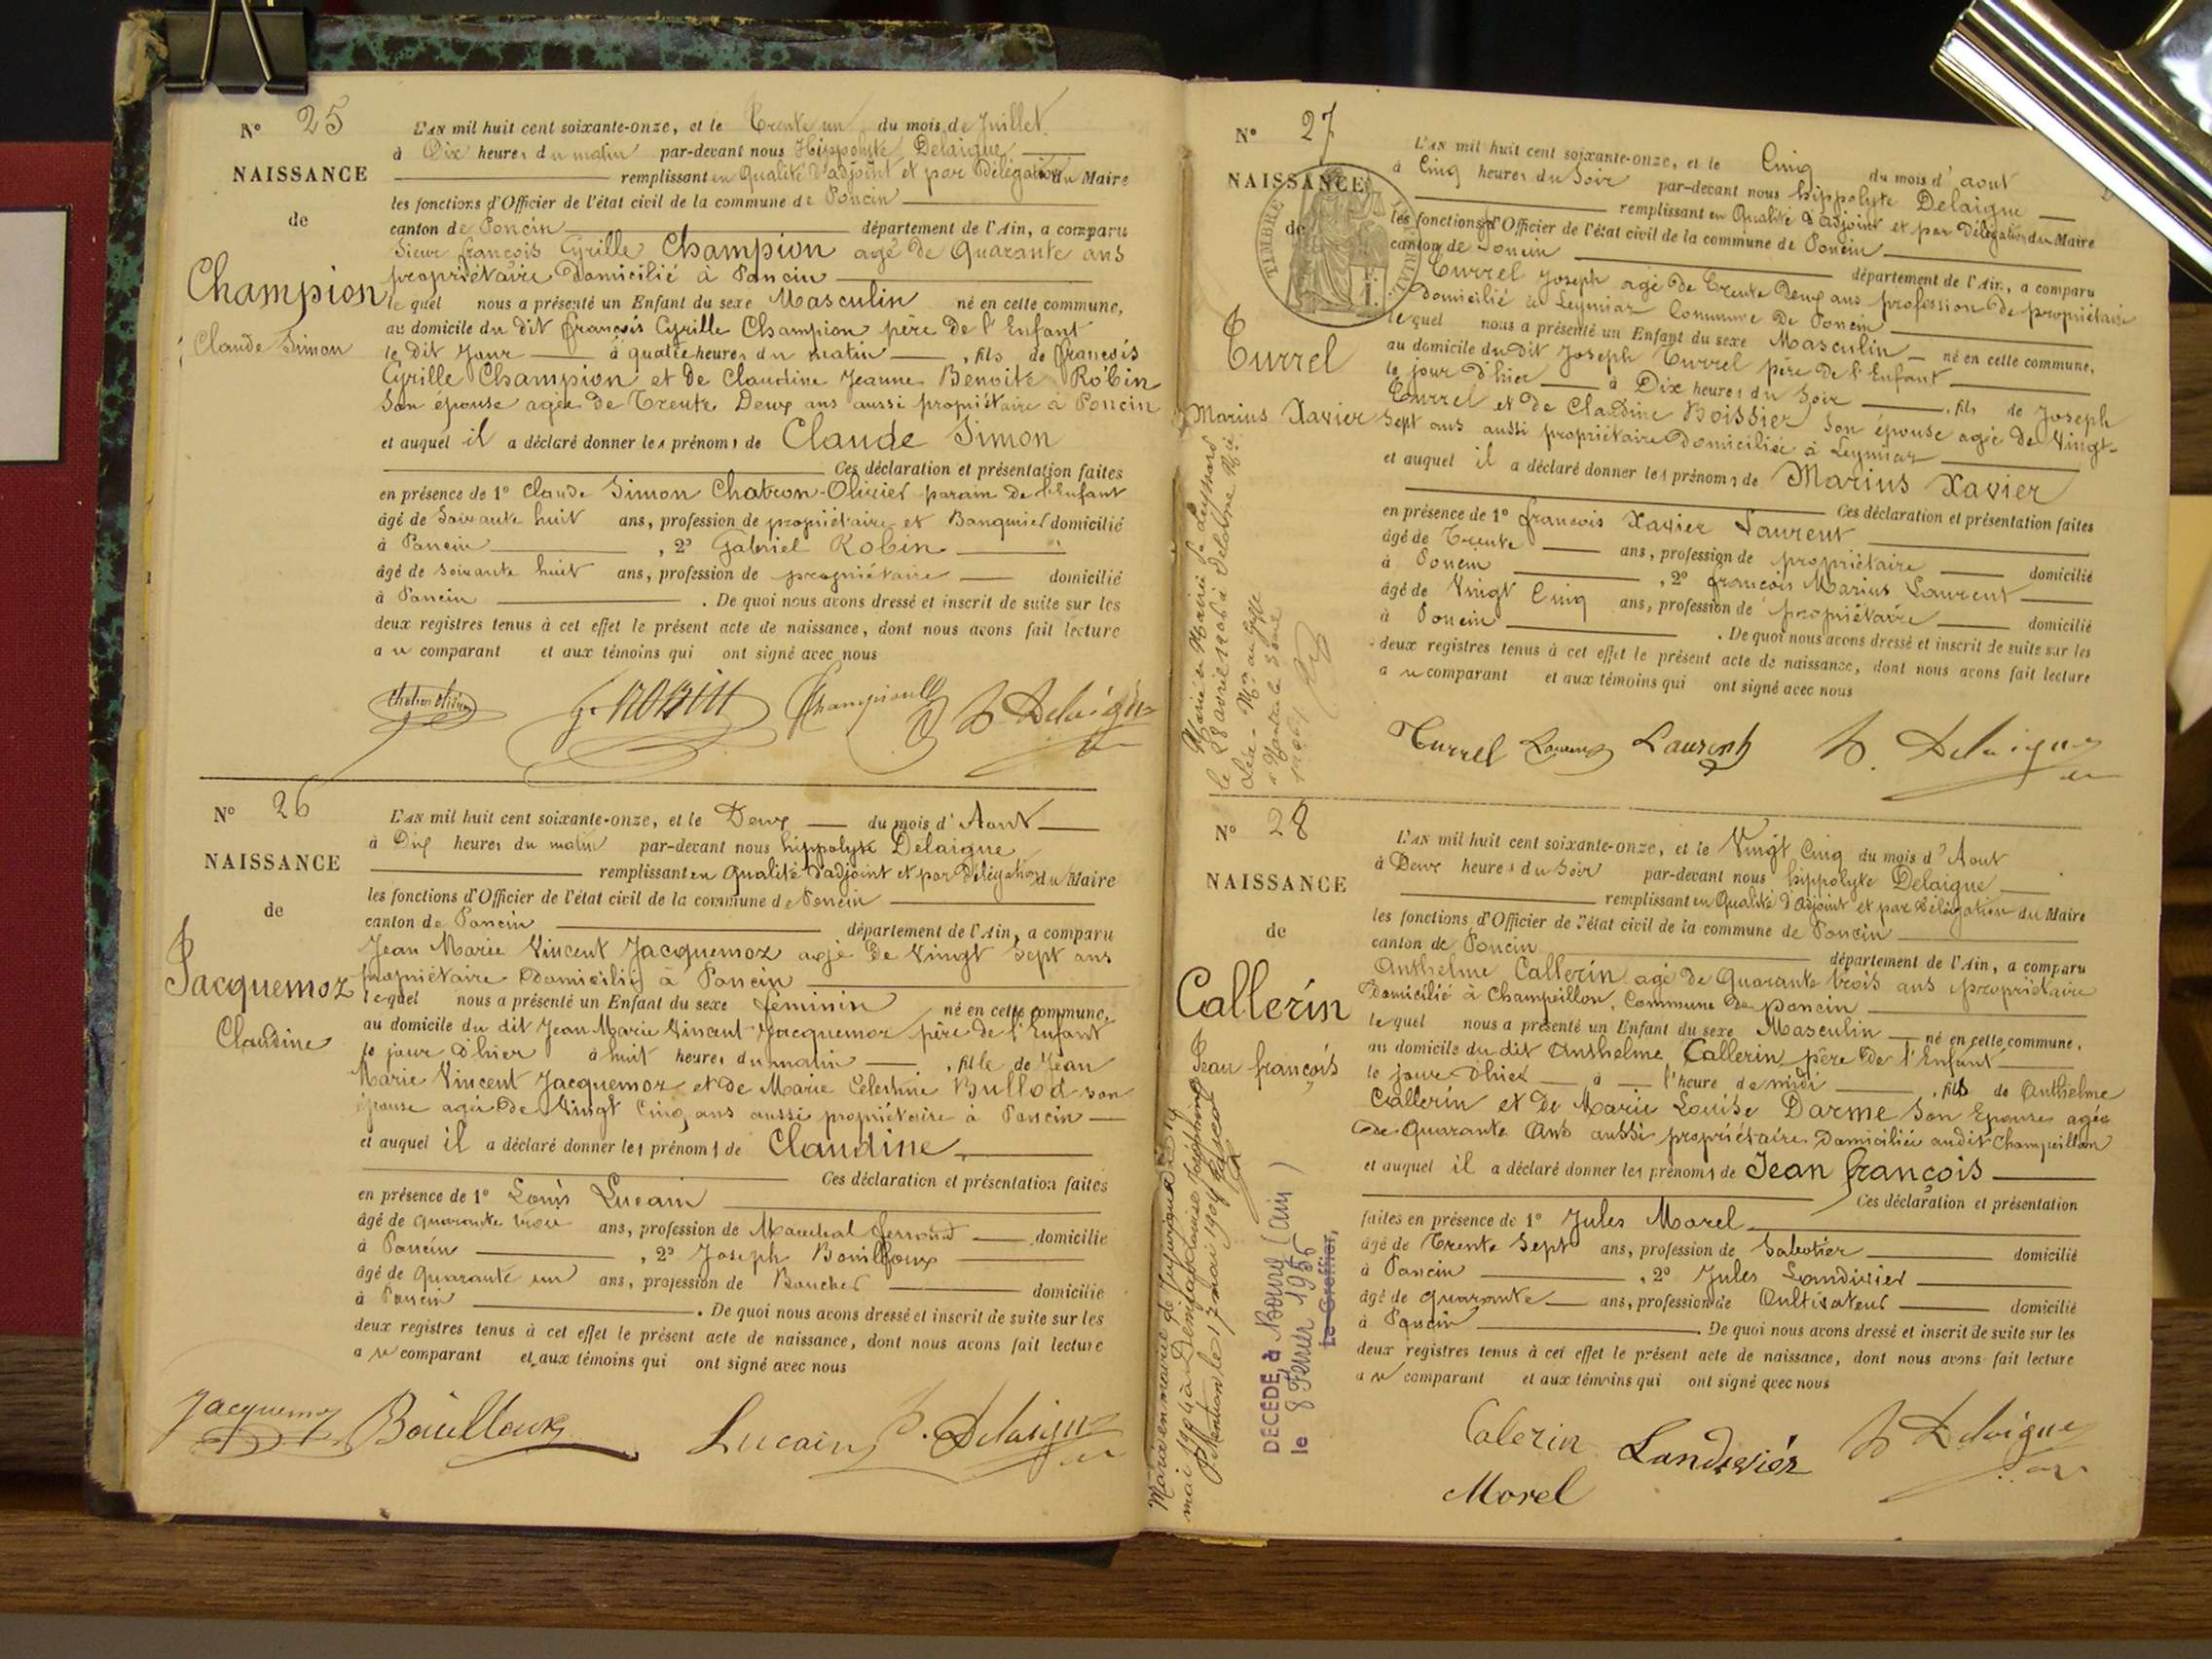 N° 25
NAISSANCE
de
Champion
Claude Simon
L'AN mil huit cent soixante-onze, et le Trente un du mois de Juillet
à Dix heures du matin par-devant nous Hippolyte Delaigue
remplissant en Qualité d'adjoint et par Délégation du Maire
les fonctions d'Officier de l'état civil de la commune de Poncin
canton de Poncin département de l'Ain, a comparu
Sieur françois Cyrille Champion agé de Quarante ans
propriétaire domicilié à Poncin
le quel nous a présenté un Enfant du sexe Masculin né en cette commune,
au domicile du dit françois Cyrille Champion père de l'Enfant
le dit Jour à quatre heures du matin, fils de françois
Cyrille Champion et de Claudine Jeanne Benoite Robin
Son épouse agée de Trente Deux ans aussi propriétaire à Poncin
et auquel il a déclaré donner les prénoms de Claude Simon
Ces déclaration et présentation faites
en présence de 1° Claude Simon Chatron-Olivier parain de l'Enfant
âgé de Soixante huit ans, profession de propriétaire et Banquier domicilié
à Poncin, 2° Gabriel Robin
âgé de soixante huit ans, profession de propriétaire domicilié
à Poncin. De quoi nous avons dressé et inscrit de suite sur les
deux registres tenus à cet effet le présent acte de naissance, dont nous avons fait lecture
a u comparant et aux témoins qui ont signé avec nous
g. ROBIN H Delaigue
N° 26
NAISSANCE
de
Jacquemoz
Claudine
L'AN mil huit cent soixante-onze, et le Deux du mois d'Aout
à Dix heures du matin par-devant nous hippolyte Delaigue
remplissant en Qualité d'adjoint et par Délégation du Maire
les fonctions d'Officier de l'état civil de la commune de Poncin
canton de Poncin département de l'Ain, a comparu
Jean Marie Vincent Jacquemoz agé de Vingt Sept ans
propriétaire Domicilié à Poncin
lequel nous a présenté un Enfant du sexe féminin né en cette commune,
au domicile du dit Jean Marie Vincent Jacquemoz père de l'Enfant
le jour d'hier à huit heures du matin, fille de Jean
Marie Vincent Jacquemoz et de Marie Célestine Bullod son
épouse agée de Vingt Cinq ans aussi propriétaire à Poncin
et auquel il a déclaré donner les prénoms de Claudine
Ces déclaration et présentation faites
en présence de 1° Louis Lucain
âgé de quarante trois ans, profession de Marechal ferrand domicilié
à Poncin, 2° Joseph Bouilloux
âgé de Quarante un ans, profession de Boucher domicilié
à Poncin. De quoi nous avons dressé et inscrit de suite sur les
deux registres tenus à cet effet le présent acte de naissance, dont nous avons fait lecture
a u comparant et aux témoins qui ont signé avec nous
Jacquemoz Bouilloux Lucain H. Delaigue
N° 27
NAISSANCE
de
TIMBRE IMPÉRIAL
Turrel
Marius Xavier
L'AN mil huit cent soixante-onze, et le Cinq du mois d'aout
à Cinq heures du Soir par-devant nous hippolyte Delaigue
remplissant en Qualité d'adjoint et par Délégation du Maire
les fonctions d'Officier de l'état civil de la commune de Poncin
canton de Poncin département de l'Ain, a comparu
Turrel Joseph agé de Trente Deux ans profession de propriétaire
domicilié à Leymiat Commune de Poncin
lequel nous a présenté un Enfant du sexe Masculin né en cette commune,
au domicile du dit Joseph Turrel père de l'Enfant
le jour d'hier à Dix heures du Soir, fils de Joseph
Turrel et de Claudine Boissier Son épouse agée de Vingt-
Sept ans aussi propriétaire Domiciliée à Leymiat
et auquel il a déclaré donner les prénoms de Marius Xavier
Ces déclaration et présentation faites
en présence de 1° françois Xavier Laurent
âgé de Trente ans, profession de propriétaire domicilié
à Poncin, 2° françois Marius Laurent
âgé de Vingt Cinq ans, profession de propriétaire domicilié
à Poncin. De quoi nous avons dressé et inscrit de suite sur les
deux registres tenus à cet effet le présent acte de naissance, dont nous avons fait lecture
a u comparant et aux témoins qui ont signé avec nous
Turrel Laurent Laurent H. Delaigue
Marié en Mairie de Leyssard
le 28 avril 1906 à
N° 28
NAISSANCE
de
Callerin
Jean françois
L'AN mil huit cent soixante-onze, et le Vingt Cinq du mois d'Aout
à Deux heures du Soir par-devant nous hippolyte Delaigue
remplissant en Qualité d'adjoint et par délégation du Maire
les fonctions d'Officier de l'état civil de la commune de Poncin
canton de Poncin département de l'Ain, a comparu
Anthelme Callerin agé de Quarante trois ans propriétaire
Domicilié à Champeillon, Commune de poncin
lequel nous a présenté un Enfant du sexe Masculin né en cette commune,
au domicile du dit Anthelme Callerin père de l'Enfant
le jour d'hier à l'heure de midi, fils de Anthelme
Callerin et de Marie Louise Darme Son Epouse agée
de Quarante Ans aussi propriétaire Domiciliée audit Champeillon
et auquel il a déclaré donner les prénoms de Jean françois
Ces déclaration et présentation
faites en présence de 1° Jules Morel
âgé de Trente Sept ans, profession de Sabotier domicilié
à Poncin, 2° Jules Landivier
âgé de quarante ans, profession de Cultivateur domicilié
à Poncin. De quoi nous avons dressé et inscrit de suite sur les
deux registres tenus à cet effet le présent acte de naissance, dont nous avons fait lecture
a u comparant et aux témoins qui ont signé avec nous
Calerin Landivier H Delaigue
Morel
Marié en mairie de Jujurieux le 14
mai 1904 à
Mention, le 17 mai 1904
DÉCÉDÉ à Bourg (Ain)
le 8 Février 1955
Le Greffier,